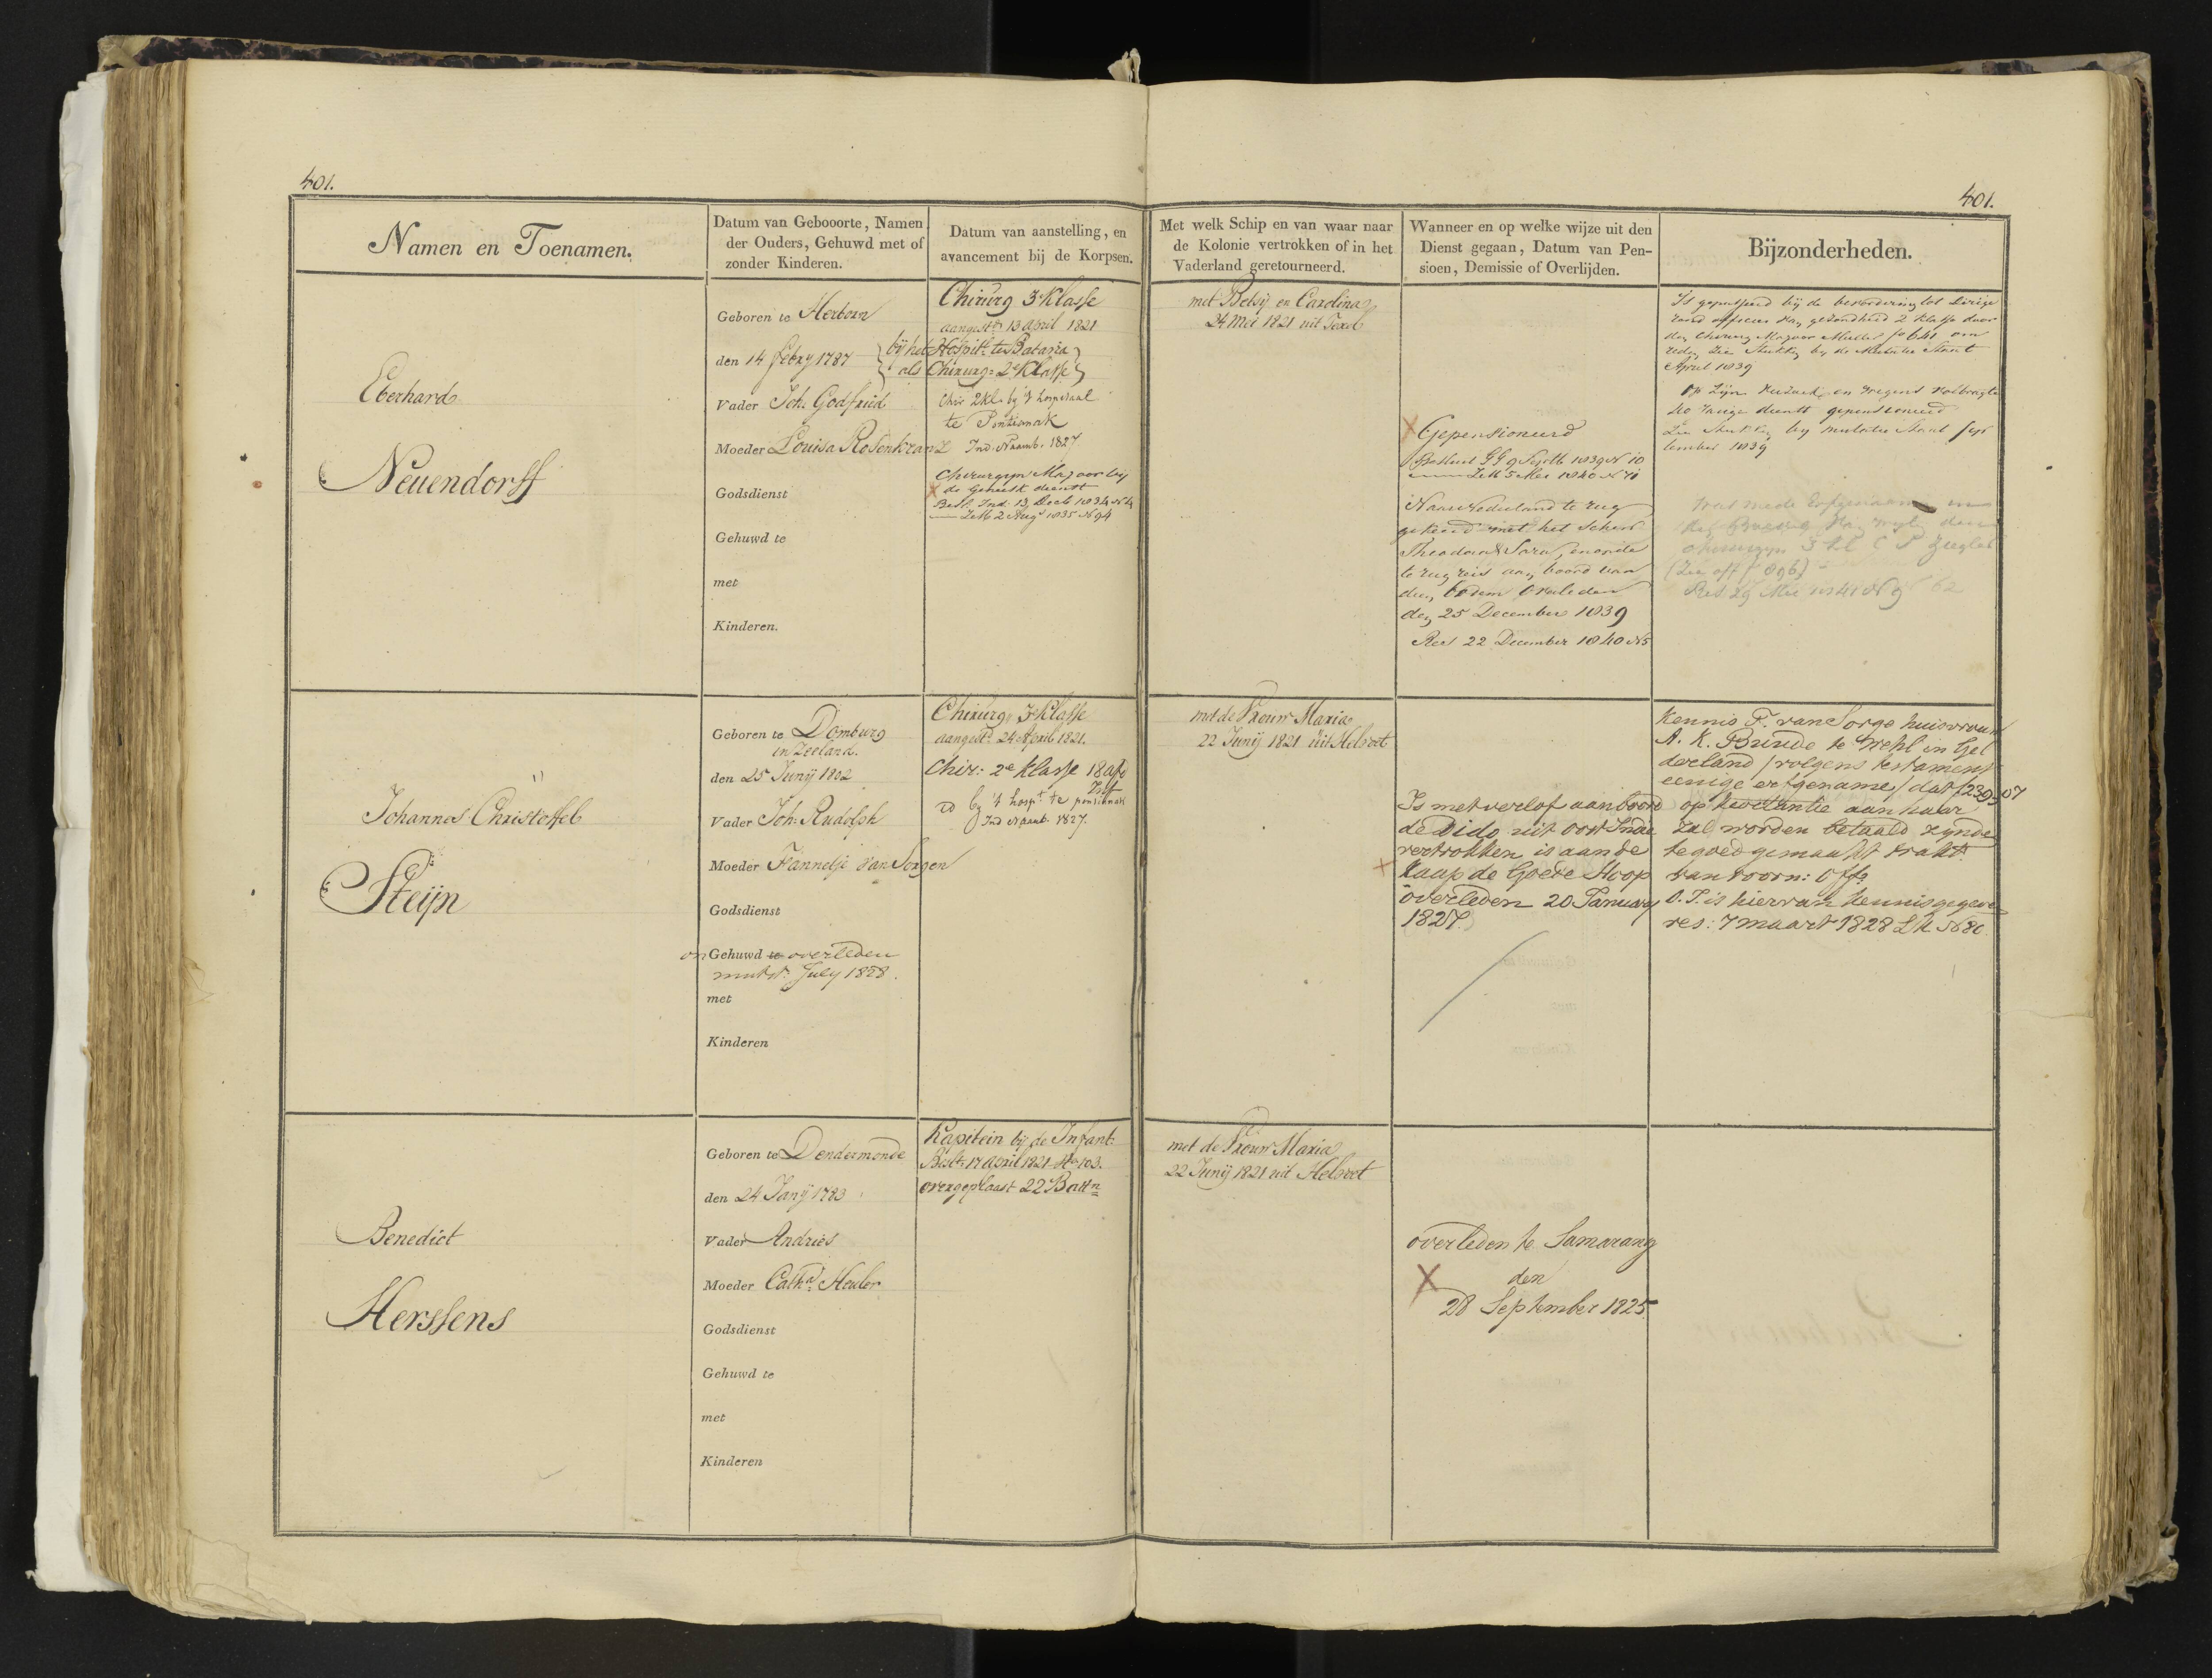 401.
401.
Namen en Toenamen.
Datum van Gebooorte, Namen
der Ouders, Gehuwd met of
zonder Kinderen.
Datum van aanstelling, en
avancement bij de Korpsen.
Met welk Schip en van waar naar
de Kolonie vertrokken of in het
Vaderland geretourneerd.
Wanneer en op welke wijze uit den
Dienst gegaan, Datum van Pen-
sioen, Demissie of Overlijden.
Bijzonderheden.
Eberhard
Neuendorff
Geboren te Herborn
den 14 Febry 1787
Vader Joh. Godfried
Moeder Louisa Rosenkranz
Godsdienst
Gehuwd te
met
Kinderen.
Chirurg 3e Klasse
aangest. 13 April 1821
bij het Hospitl. te Batavia
als Chirurg: 2e Klasse
Chir 2 Kl. by 't hospitaal
te Pontianak
Ind. Naaml. 1827
Chirurgyn Majoor bij
de Geneesk dienst
Besl. Ind. 13 Decb 1834 N 4
Lett 2 Aug 1835 N 94
met Betsij en Carolina
24 Mei 1821 uit Texel
Gepensioneerd
Besluit GG 9 Septb 1839 N 10
Lett 5 Mei 1840 N 71
Naar Nederland te rug
gekeerd met het Schip
Theodora & Sara, en op de
te rug reis aan boord van
dien bodem overleden
den 25 December 1839
Res 22 December 1840 N 5
Is gepasseerd bij de bevordering tot Dirige
rend officier van gezondheid 2 Klasse door
den Chirurg Majoor Muller fo 641 om
reden Zie Stukken by de Mutatie Staat
April 1839
Op Zijn verzoek en wegens volbragte
20 Jarige dienst gepensioneerd
Zie Stukken by mutatie Staat Sep
tember 1839
chirurgyn 3 kl C P Ziegler
(Zie off fo 896)
Res 29 Mei 1841 N 9
Johannes Christoffel
Steijn
Geboren te Domburg
in Zeeland.
den 25 Junij 1802
Vader Joh: Rudolph
Moeder Jannetje van Sorgen
Godsdienst
on Gehuwd te overleden
mutst. July 1828.
met
Kinderen
Chirurg 3e Klasse
aangestd. 24 April 1821.
Chir: 2e Klasse
id by 't hospt. te pontianak
Ind Naaml. 1827.
met de Vrouw Maria
22 Junij 1821 uit Helvoet
Is met verlof aan boord
de Dido uit Oost Indie
vertrokken is aan de
Kaap de Goede Hoop
overleden 20 January
1827.
Kennis F. van Sorge huisvrouw
A. K. Bruude te Wehl in Gel
derland / volgens testament
eenige erfgename / dat f 239,07
op kwitantie aan haar
zal worden betaald zynde
te goed gemaakt trakt.
van voorn: Offr.
O. I. is hiervan kennis gegeven
res: 7 maart 1828 LK N 80
Benedict
Herssens
Geboren te Dendermonde
den 24 Janij 1783
Vader Andries
Moeder Catha. Heuler
Godsdienst
Gehuwd te
met
Kinderen
Kapitein bij de Infant:
Beslt. 17 April 1821 No 103.
overgeplaast 22 Battn
met de Vrouw Maria
22 Junij 1821 uit Helvoet
overleden te Samarang
den
28 September 1825.